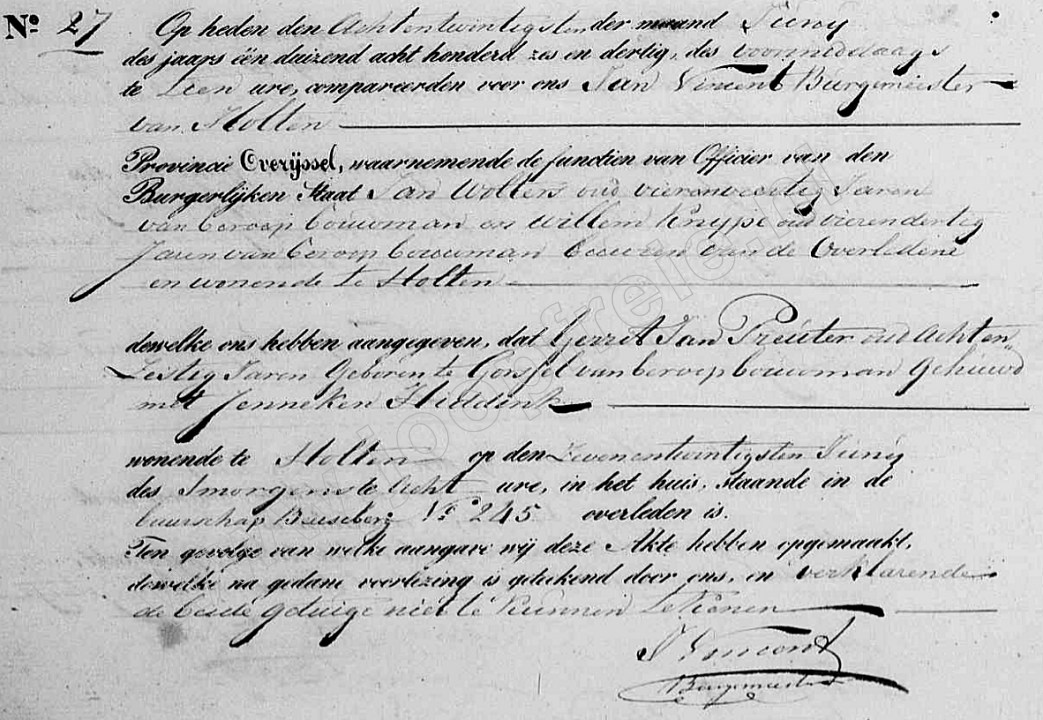 No. 27 Op heden den Achtentwintigsten der maand Juny
des jaars één duizend acht honderd zes en dertig, des voormiddaags
te Tien ure, compareerden voor ons Jan Vincent Burgemeister
van Holten
Provincie Overijssel, waarnemende de functien van Officier van den
Burgerlijken Staat Jan Wolters oud vierenveertig Jaren
van beroep bouwman en Willem Knijpe oud vierendertig
Jaren van beroep bouwman beeuren van de Overledene
en wonende te Holten
dewelke ons hebben aangegeven, dat Gerrit Jan Preuter oud Achten
Zestig Jaren Geboren te Gorssel van beroep bouwman Gehuwd
met Jenneken Hiddink
wonende te Holten op den Zevenentwintigsten Juny
des Smorgens te Acht ure, in het huis, staande in de
buurschap Beuseberg No. 245 overleden is.
Ten gevolge van welke aangave wij deze Akte hebben opgemaakt,
dewelke na gedane voorlezing is geteekend door ons, en verklarende
de beide getuige niet te kunnen Tekenen
J Vincent
Burgemeister